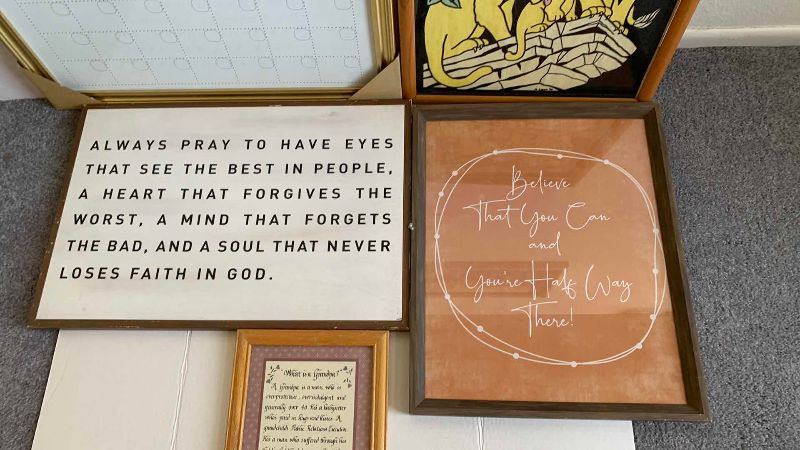 ALWAYS PRAY TO HAVE EYES
THAT SEE THE BEST IN PEOPLE,
A HEART THAT FORGIVES THE
WORST, A MIND THAT FORGETS
THE BAD, AND A SOUL THAT NEVER
LOSES FAITH IN GOD.
Believe
That You Can
and
You're Half Way
There!
What is a Grandpa?
A Grandpa is a man who is
overprotective, overindulgent and
generally over 40. He's a babysitter
who's paid in hugs and kisses. A
grandchild's Public Relations Executive.
He's a man who suffered through his